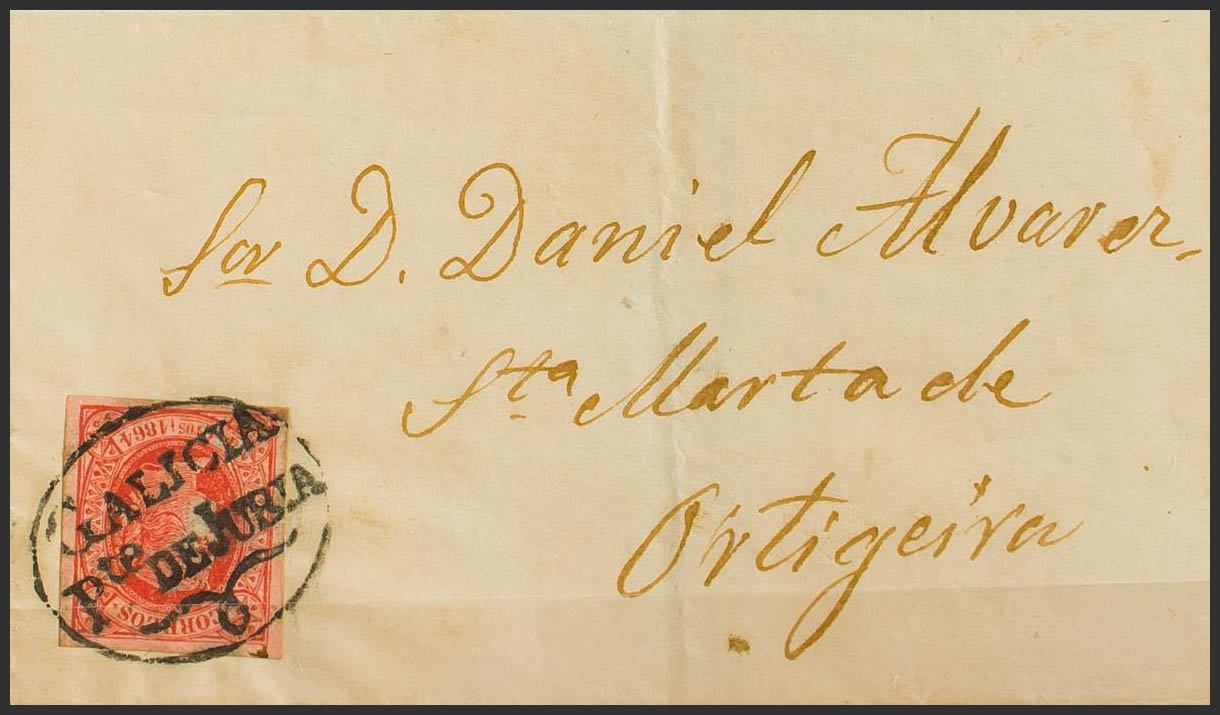 Sor D. Daniel Alvarez,
Sta Marta de
Ortigeira
GALICIA
Pte DE JUBIA
CORREOS
1864